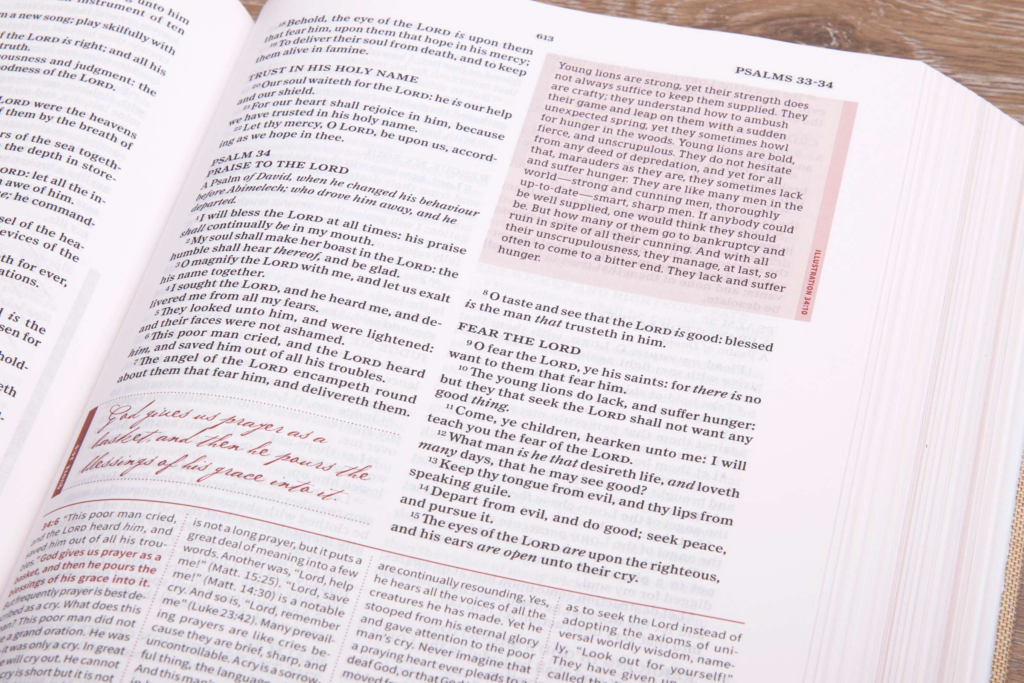 unto him
instrument of ten
new song; play skilfully with
of the LORD is right; and all his
truth.
ousness and judgment: the
odness of the LORD.
LORD were the heavens
of them by the breath of
rs of the sea togeth-
the depth in store-
LORD: let all the in-
awe of him.
e; he command-
sel of the hea-
evices of the
th for ever,
ations.
is the
sen for
hold-
613
PSALMS 33-34
18 Behold, the eye of the LORD is upon them
that fear him, upon them that hope in his mercy;
19 To deliver their soul from death, and to keep
them alive in famine.
TRUST IN HIS HOLY NAME
20 Our soul waiteth for the LORD: he is our help
and our shield.
21 For our heart shall rejoice in him, because
we have trusted in his holy name.
22 Let thy mercy, O LORD, be upon us, accord-
ing as we hope in thee.
PSALM 34
PRAISE TO THE LORD
A Psalm of David, when he changed his behaviour
before Abimelech; who drove him away, and he
departed.
1 I will bless the LORD at all times: his praise
shall continually be in my mouth.
2 My soul shall make her boast in the LORD: the
humble shall hear thereof, and be glad.
3 O magnify the LORD with me, and let us exalt
his name together.
4 I sought the LORD, and he heard me, and de-
livered me from all my fears.
5 They looked unto him, and were lightened:
and their faces were not ashamed.
6 This poor man cried, and the LORD heard
him, and saved him out of all his troubles.
7 The angel of the LORD encampeth round
about them that fear him, and delivereth them.
God gives us prayer as a
basket, and then he pours the
blessings of his grace into it.
Young lions are strong, yet their strength does
not always suffice to keep them supplied. They
are crafty; they understand how to ambush
their game and leap on them with a sudden
unexpected spring, yet they sometimes howl
for hunger in the woods. Young lions are bold,
fierce, and unscrupulous. They do not hesitate
from any deed of depredation, and yet for all
that, marauders as they are, they sometimes lack
and suffer hunger. They are like many men in the
world—strong and cunning men, thoroughly
up-to-date—smart, sharp men. If anybody could
be well supplied, one would think they should
be. But how many of them go to bankruptcy and
ruin in spite of all their cunning. And with all
their unscrupulousness, they manage, at last, so
often to come to a bitter end. They lack and suffer
hunger.
ILLUSTRATION 34:10
8 O taste and see that the LORD is good: blessed
is the man that trusteth in him.
FEAR THE LORD
9 O fear the LORD, ye his saints: for there is no
want to them that fear him.
10 The young lions do lack, and suffer hunger:
but they that seek the LORD shall not want any
good thing.
11 Come, ye children, hearken unto me: I will
teach you the fear of the LORD.
12 What man is he that desireth life, and loveth
many days, that he may see good?
13 Keep thy tongue from evil, and thy lips from
speaking guile.
14 Depart from evil, and do good; seek peace,
and pursue it.
15 The eyes of the LORD are upon the righteous,
and his ears are open unto their cry.
34:6 "This poor man cried,
and the LORD heard him, and
saved him out of all his trou-
bles." God gives us prayer as a
basket, and then he pours the
blessings of his grace into it.
But frequently prayer is best de-
scribed as a cry. What does this
mean? This poor man did not
a grand oration. He was
it was only a cry. In great
will cry out. He cannot
cry is short but it is not
is not a long prayer, but it puts a
great deal of meaning into a few
words. Another was, "Lord, help
me!" (Matt. 15:25). "Lord, save
me!" (Matt. 14:30) is a notable
cry. And so is, "Lord, remember
me" (Luke 23:42). Many prevail-
ing prayers are like cries be-
cause they are brief, sharp, and
uncontrollable. A cry is a sorrow-
ful thing, the language
And this man
are continually resounding. Yes,
he hears all the voices of all the
creatures he has made. Yet he
stooped from his eternal glory
and gave attention to the poor
man's cry. Never imagine that
a praying heart ever pleads to a
deaf God, or that God
moved
as to seek the Lord instead of
adopting the axioms of uni-
versal worldly wisdom, name-
ly, "Look out for yourself!"
They have given up
called the